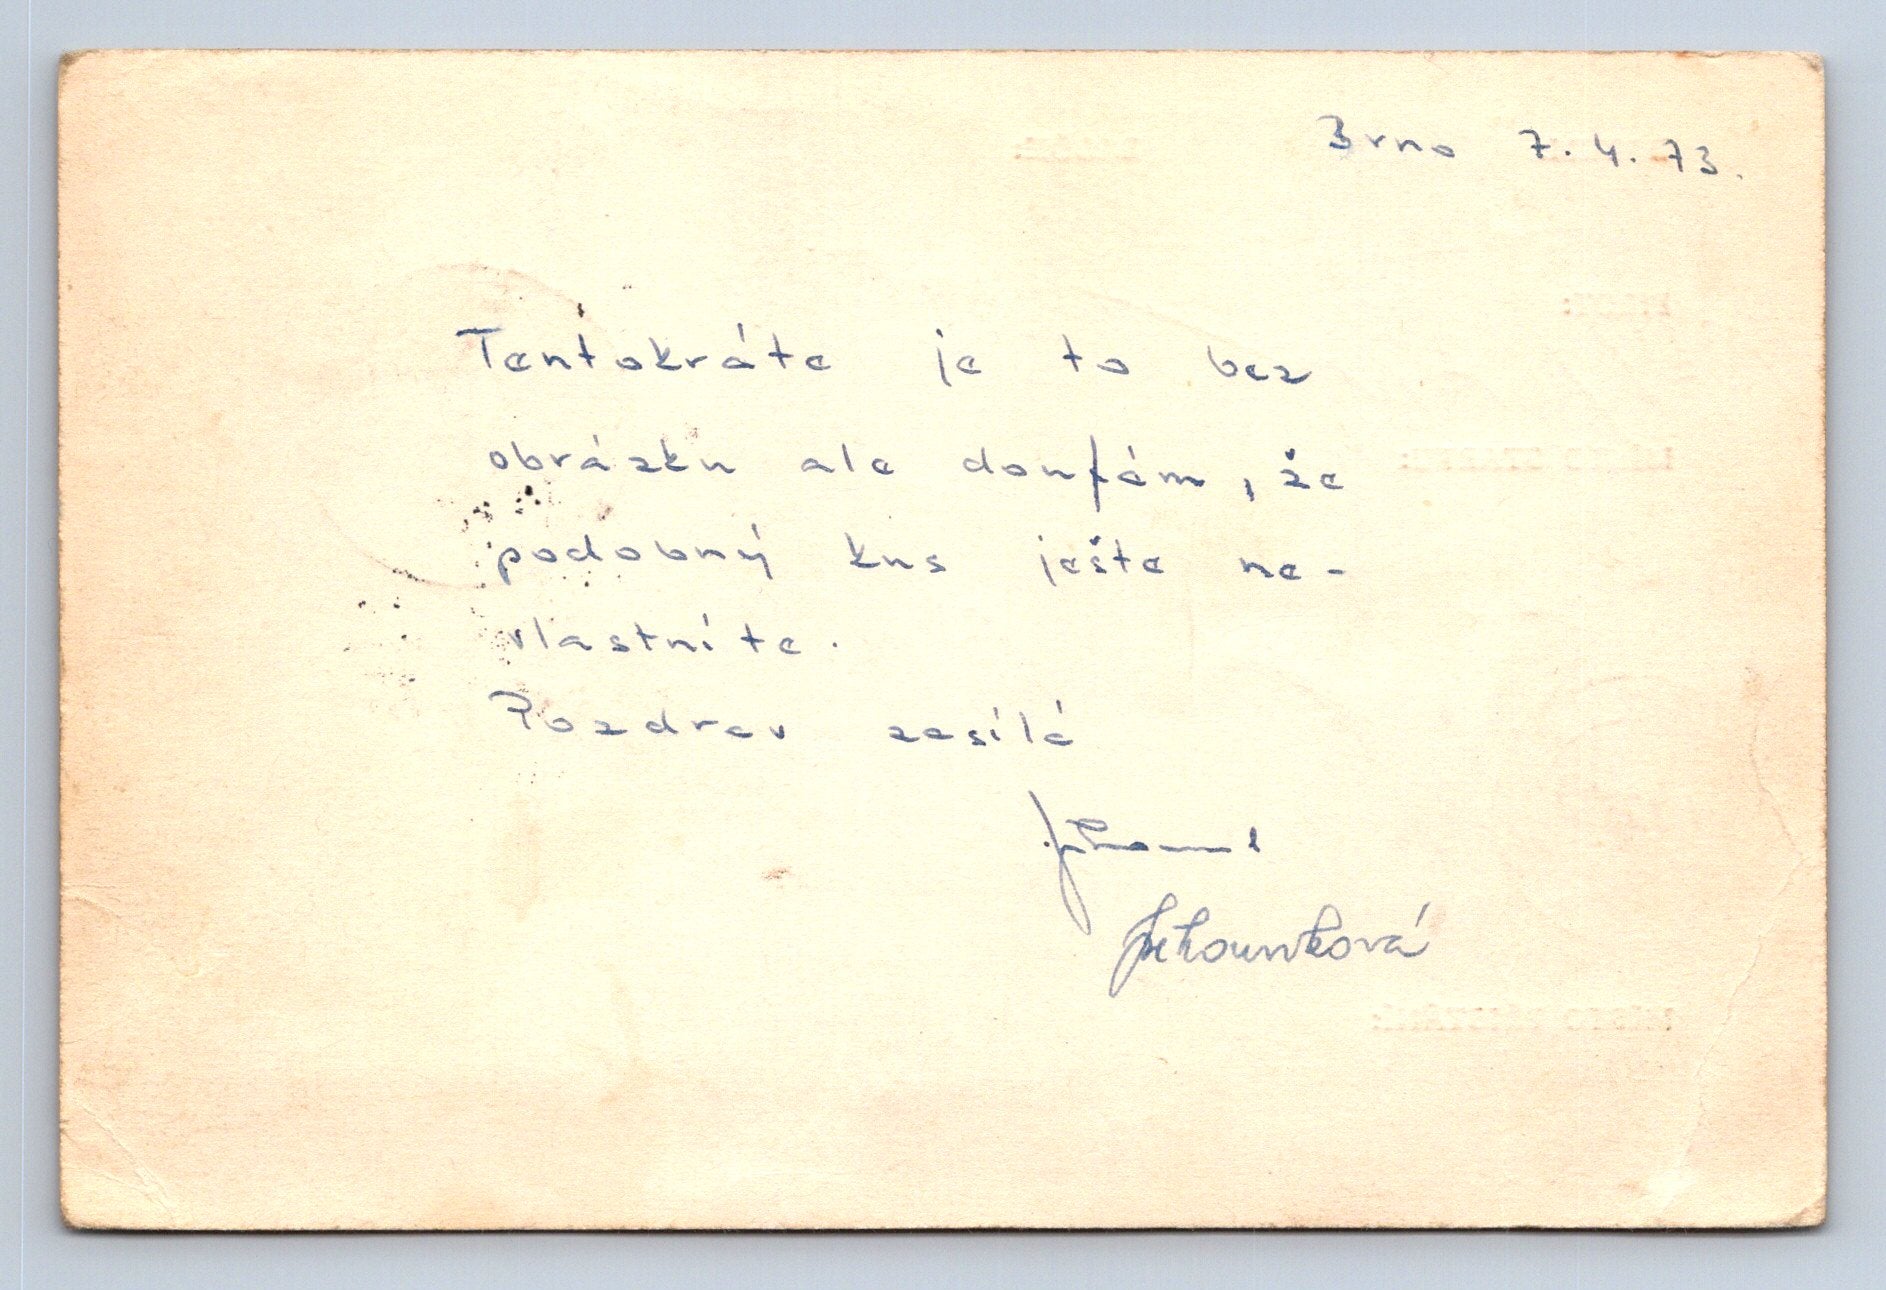 Brno 7. 4. 73.
Tentokráte je to bez
obrázku ale doufám, že
podobný kus ješte ne-
vlastníte.
Pozdrav zasílá